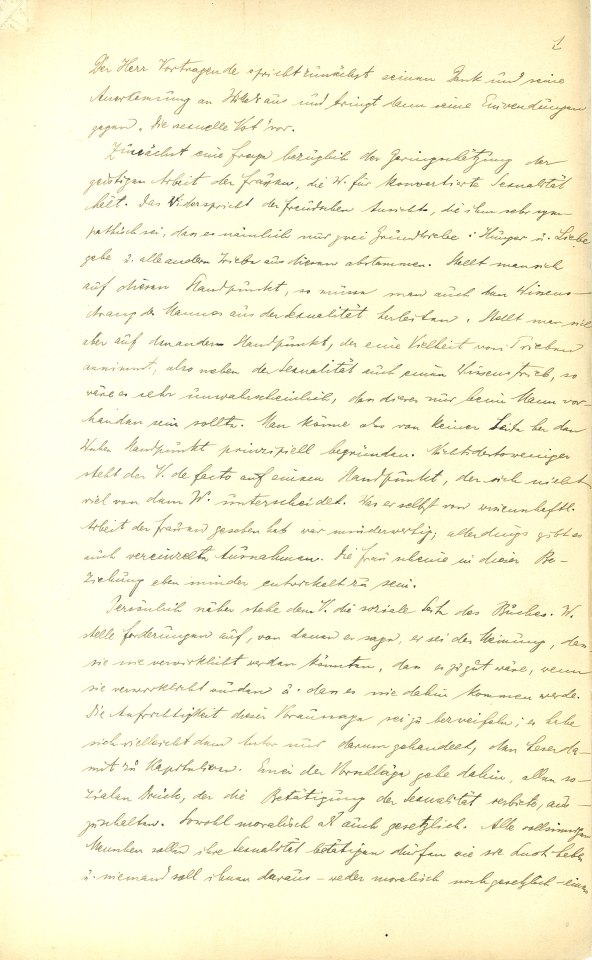 1
Der Herr Vortragende spricht zunächst seinen Dank und seine
Anerkennung an Wittels aus und bringt dann seine Einwendungen
gegen „Die sexuelle Not" vor.
Zunächst eine Frage bezüglich der Geringschätzung der
geistigen Arbeit der Frauen, die W. für konvertierte Sexualität
hält. Das widerspricht der Freudschen Ansicht, die ihm sehr sym-
pathisch sei, dass es nämlich nur zwei Grundtriebe: Hunger u. Liebe
gebe u. alle andern Triebe aus diesen abstammen. Stellt man sich
auf diesen Standpunkt, so müsse man auch den Wissens-
drang des Mannes aus der Sexualität herleiten. Stellt man sich
aber auf den andern Standpunkt, der eine Vielheit von Trieben
annimmt, also neben der Sexualität auch einen Wissenstrieb, so
wäre es sehr unwahrscheinlich, dass dieser nur beim Mann vor-
handen sein sollte. Man könne also von keiner Seite her den
Standpunkt prinzipiell begründen. Nichtsdestoweniger
steht der V. de facto auf einem Standpunkt, der sich nicht
viel von dem W. unterscheidet. Was er selbst von wissenschaftl.
Arbeit der Frauen gesehen hat war minderwertig; allerdings gibt es
auch vereinzelte Ausnahmen. Die Frau scheine in dieser Be-
ziehung eben minder entwickelt zu sein.
Persönlich näher stehe dem V. die soziale Seite des Buches. W.
stelle Forderungen auf, von denen er sage, er sei der Meinung, dass
sie nie verwirklicht werden könnten, dass es ja gut wäre, wenn
sie verwirklicht würden u. dass es nie dahin kommen werde.
Die Aufrichtigkeit dieser Voraussage sei zu bezweifeln; es habe
sich vielleicht dem Autor nur darum gehandelt, den Leser da-
mit zu kaptivieren. Einer der Vorschläge gehe dahin, allen so-
zialen Druck, der die Betätigung der Sexualität verbiete, aus-
zuschalten. Sowohl moralisch als auch gesetzlich. Alle vollsinnigen
Menschen sollen ihre Sexualität betätigen dürfen wie sie Lust haben
u. niemand soll ihnen daraus – weder moralisch noch gesetzlich – einen